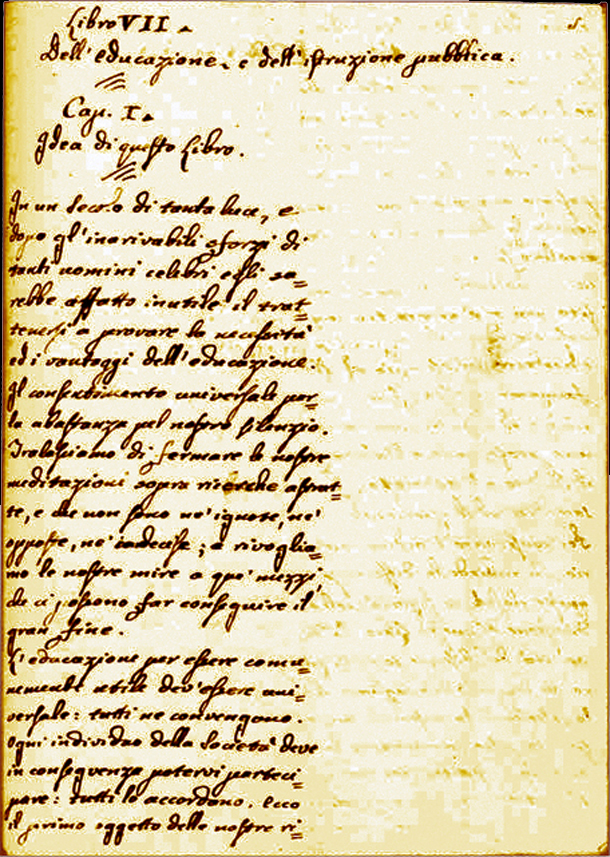 Libro VII.
Dell'educazione, e dell'istruzione pubblica.
Cap. I.
Idea di questo Libro.
In un secolo di tanta luce, e
dopo gl'inarivabili sforzi di
tanti uomini celebri egli sa=
rebbe affatto inutile il trat=
tenersi a provare la necessità
ed i vantaggi dell'educazione.
Il consentimento universale par=
la abastanza pel nostro silenzio.
Tralasciamo di fermare le nostre
meditazioni sopra ricerche astrat=
te, e che non sono ne' ignote, ne'
opposte, ne' indecise; e rivoglia=
mo le nostre mire a que' mezzi,
che ci possono far conseguire il
gran fine.
L'educazione per essere comu=
nemente utile dev'essere uni=
versale: tutti ne convengono.
Ogni individuo della Società deve
in conseguenza potervi parteci=
pare: tutti lo accordano. Ecco
il primo oggetto delle nostre ri=